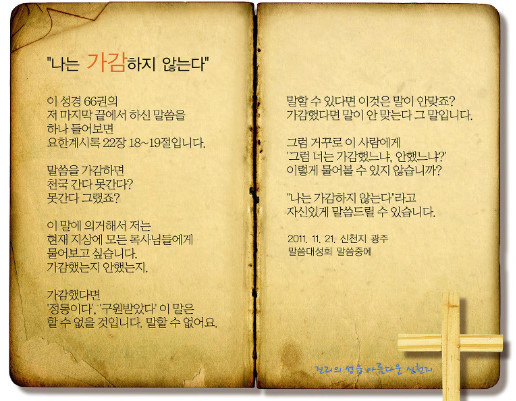 "나는 가감하지 않는다"
이 성경 66권의
저 마지막 끝에서 하신 말씀을
하나 들어보면
요한계시록 22장 18~19절입니다.
말씀을 가감하면
천국 간다 못간다?
못간다 그랬죠?
이 말에 의거해서 저는
현재 지상에 모든 목사님들에게
물어보고 싶습니다.
가감했는지 안했는지.
가감했다면
'정통이다', '구원받았다' 이 말은
할 수 없을 것입니다. 말할 수 없어요.
말할 수 있다면 이것은 말이 안맞죠?
가감했다면 말이 안 맞는다 그 말입니다.
그럼 거꾸로 이 사람에게
'그럼 너는 가감했느냐, 안했느냐?'
이렇게 물어볼 수 있지 않습니까?
"나는 가감하지 않는다"라고
자신있게 말씀드릴 수 있습니다.
2011. 11. 21. 신천지 광주
말씀대성회 말씀중에
진리의 전당 아름다운 신천지